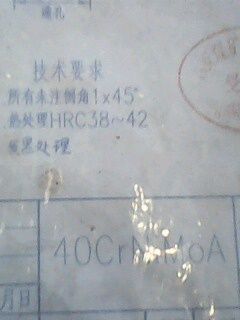 通孔
技术要求
所有未注倒角1×45°
热处理HRC38~42
发黑处理
40CrNiMoA
月日